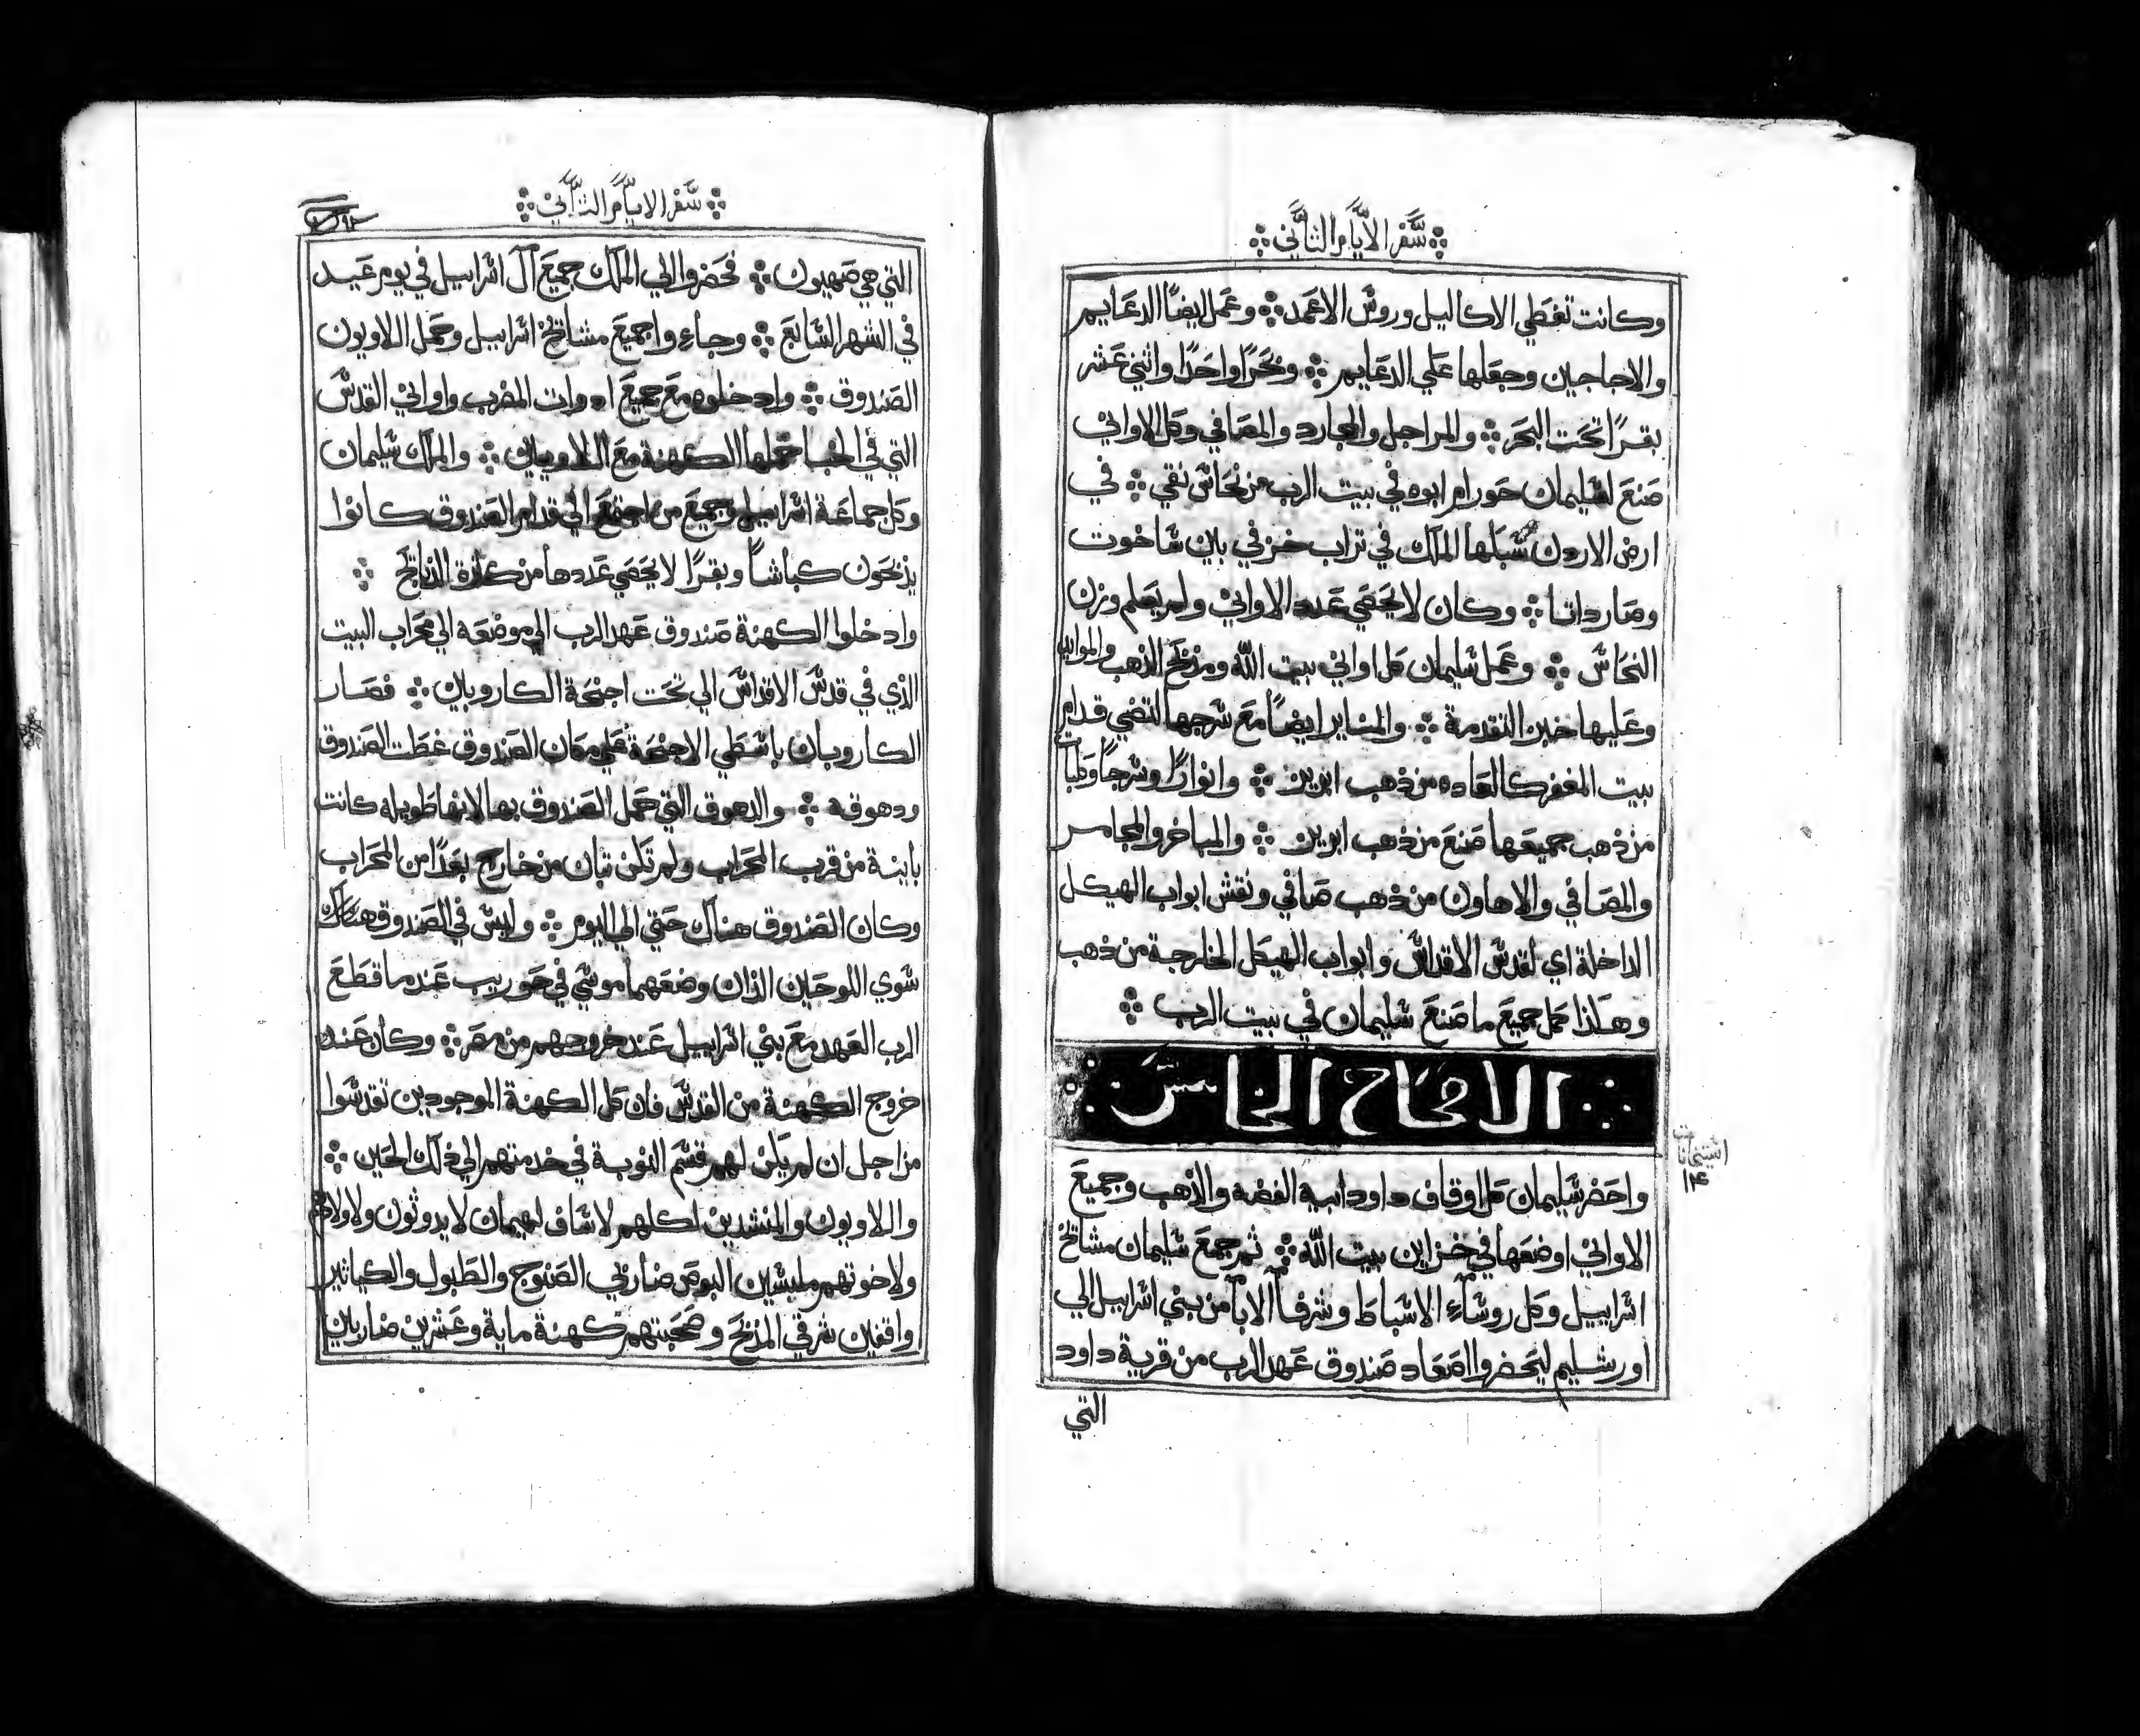 سفر الايام الثاني
وكانت تغطي الاكاليل وروش الاعمد ⁘ وعمل ايضًا الدعايم
والاجاجين وجعلها علي الدعايم ⁘ وبحرًا واحدًا واثني عشر
بقرًا تحت البحر ⁘ والمراجل والمجارد والمصافي وكل الاواني
صنع لسليمان حورام ابوه في بيت الرب من نحاس نقي ⁘ في
ارض الاردن سبلها الملك في تراب خزفي بين ساخوت
وصارداتا ⁘ وكان لا يحصي عدد الاواني ولم يعلم وزن
النحاس ⁘ وعمل سليمان كل اواني بيت الله ومذبح الذهب والموايد
وعليها خبز التقدمة ⁘ والمناير ايضًا مع سرجها لتضي قدام
بيت المغفر كالعاده من ذهب ابريز ⁘ وانوارًا وسرجًا وكلبات
من ذهب جميعها صنع من ذهب ابريز ⁘ والمباخر والمجامر
والمصافي والاهاون من ذهب صافي ونقش ابواب الهيكل
الداخلة اي لقدس الاقداس وابواب الهيكل الخارجة من ذهب
وهكذا كمل جميع ما صنع سليمان في بيت الرب ⁘
الاصحاح الخامس
واحضر سليمان كل اوقاف داود ابيه الفضه والذهب وجميع
الاواني اوضعها في خزاين بيت الله ⁘ ثم جمع سليمان مشايخ
اسراييل وكل روساء الاسباط وشرفا الابا من بني اسراييل الي
اورشليم ليحضروا اصعاد صندوق عهد الرب من قرية داود
التي
سفر الايام الثاني
التي هي صهيون ⁘ فحضروا الي الملك جميع آل اسراييل في يوم عيد
في الشهر السابع ⁘ وجاءوا جميع مشايخ اسراييل وحمل اللاويون
الصندوق ⁘ وادخلوه مع جميع ادوات المضرب واواني القدس
التي في الخبا حملها الكهنة مع اللاويين ⁘ والملك سليمان
وكل جماعة اسراييل وجميع من اجتمع الي قدام الصندوق كانوا
يذبحون كباشًا وبقرًا لا يحصي عددها من كثرة الذبايح ⁘
وادخلوا الكهنة صندوق عهد الرب الي موضعه الي محراب البيت
الذي في قدس الاقداس الي تحت اجنحة الكاروبين ⁘ فصار
الكاروبان باسطي الاجنحة علي مكان الصندوق غطت الصندوق
ودهوقه ⁘ والدهوق التي حمل الصندوق بها لانها طويله كانت
باينة من قرب المحراب ولم تكن تبان من خارج بعدًا من المحراب
وكان الصندوق هناك حتي الي اليوم ⁘ وليس في الصندوق هناك
سوي اللوحين الذان وضعهما موسي في حوريب عند ما قطع
الرب العهد مع بني اسراييل عند خروجهم من مصر ⁘ وكان عند
خروج الكهنة من القدس فان كل الكهنة الموجودين تقدسوا
من اجل ان لم يكن لهم قسم النوبة في خدمتهم الي ذلك الحين ⁘
واللاويون والمنشدين لكلهم لاساف لهيمان لايدوثون ولاولادهم
ولاخوتهم ملبسين البوص ضاربي الصنوج والطبول والكياثير
واقفين شرقي المذبح وصحبتهم كهنة ماية وعشرين ضاربين